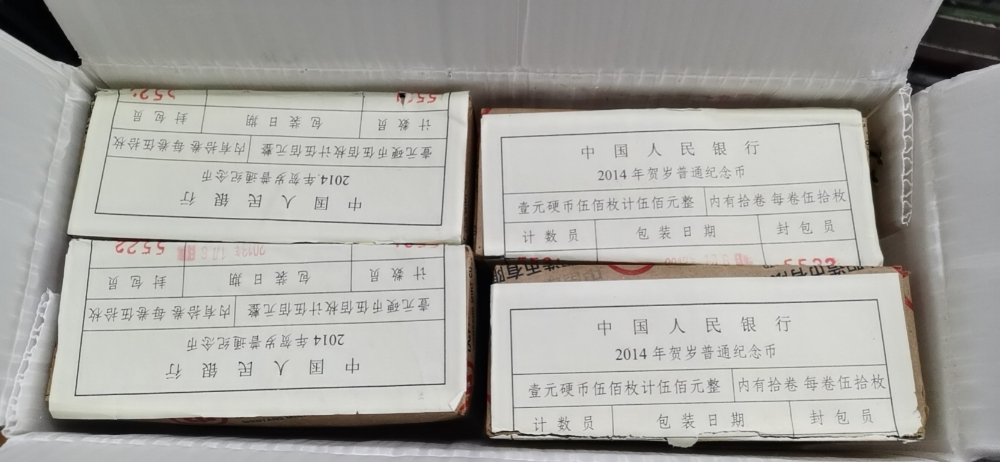 中国人民银行
2014年贺岁普通纪念币
壹元硬币伍佰枚计伍佰元整 内有拾卷每卷伍拾枚
计数员 包装日期 封包员
中国人民银行
2014年贺岁普通纪念币
壹元硬币伍佰枚计伍佰元整 内有拾卷每卷伍拾枚
计数员 包装日期 封包员
中国人民银行
2014年贺岁普通纪念币
壹元硬币伍佰枚计伍佰元整 内有拾卷每卷伍拾枚
计数员 包装日期 封包员
5522
中国人民银行
2014年贺岁普通纪念币
壹元硬币伍佰枚计伍佰元整 内有拾卷每卷伍拾枚
计数员 包装日期 封包员